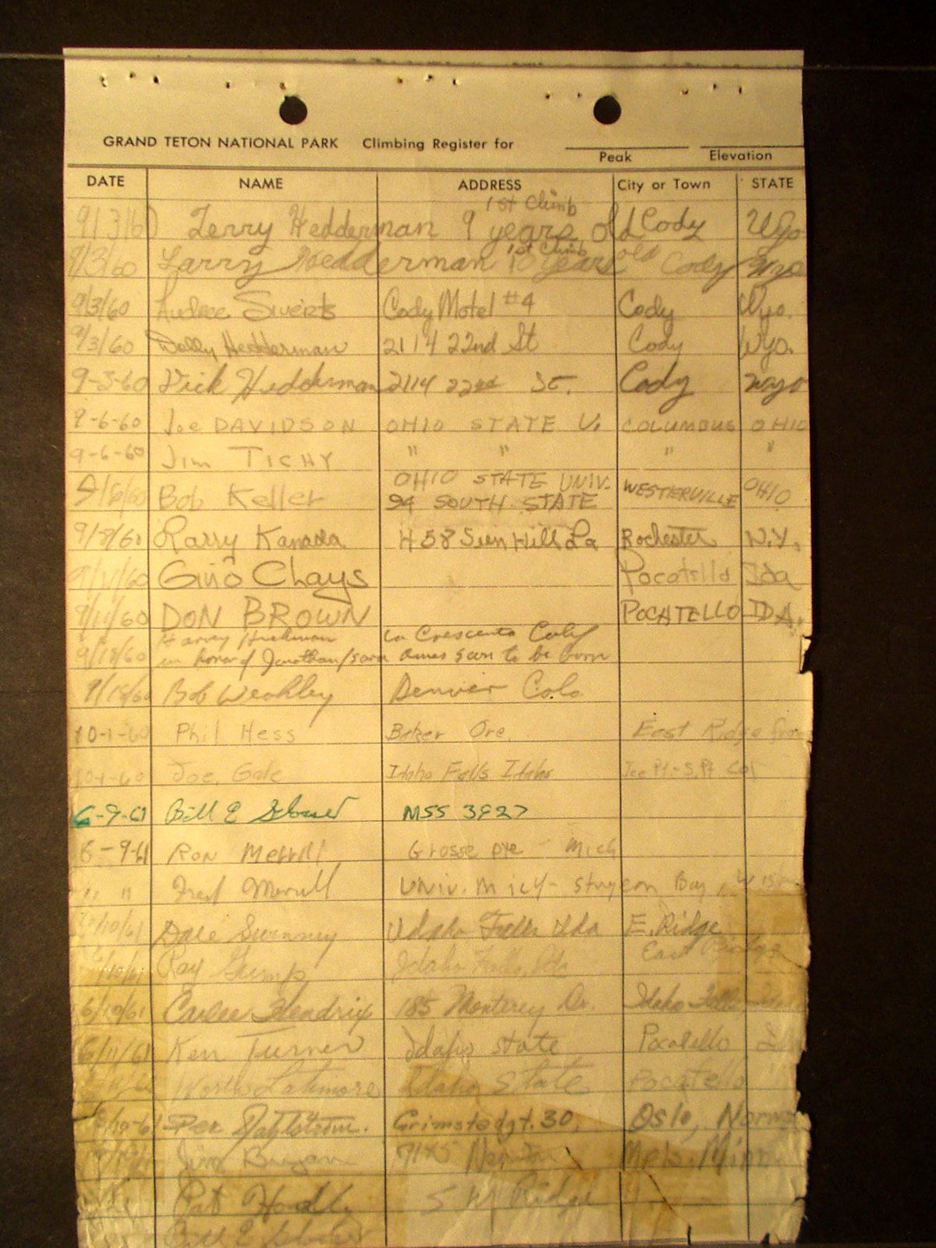 GRAND TETON NATIONAL PARK Climbing Register for
Peak Elevation
DATE NAME ADDRESS City or Town STATE
1st Climb
9/3/60 Terry Hedderman 9 years old Cody Wyo
1st Climb
9/3/60 Larry Hedderman 10 years old Cody Wyo
9/3/60 Cody Motel #4 Cody Wyo.
9/3/60 Dolly Hedderman 2114 22nd St Cody Wyo.
9-3-60 Dick Hedderman 2114 22nd St. Cody Wyo
9-6-60 Joe DAVIDSON OHIO STATE U. COLUMBUS OHIO
9-6-60 Jim TICHY " " " "
OHIO STATE UNIV.
Bob Keller 94 SOUTH STATE WESTERVILLE OHIO
9/8/60 Larry Kanada 458 Sun Hill La Rochester N.Y.
9/11/60 Gino Chays Pocatello Ida
9/11/60 DON BROWN POCATELLO IDA.
Harvey Hickman La Crescenta Calif
9/18/60 in honor of Jonathan/Sara Ames soon to be born
9/18/60 Bob Weakley Denver Colo
10-1-60 Phil Hess Baker Ore. East Ridge from
10-1-60 Joe Gale Idaho Falls Idaho Tee Pt-S.Pt Col
6-9-61 Bill E MSS 3927
6-9-61 Ron Merrill Grosse pte - Mich
" " Fred Merrill Univ. Mich - Sturgeon Bay,
Dale Swanney Idaho Falls Ida E. Ridge
Ray Gump Idaho Falls, Ida East Ridge
6/10/61 Hendrix 185 Monterey Dr. Idaho Falls
6/11/61 Ken Turner Idaho State Pocatello
Worth Latimore Idaho State Pocatello
Per Dahlstrøm. Grimstedgt. 30, Oslo, Norwa
Jim Mpls. Minn
Pat S W Ridge
Bill E